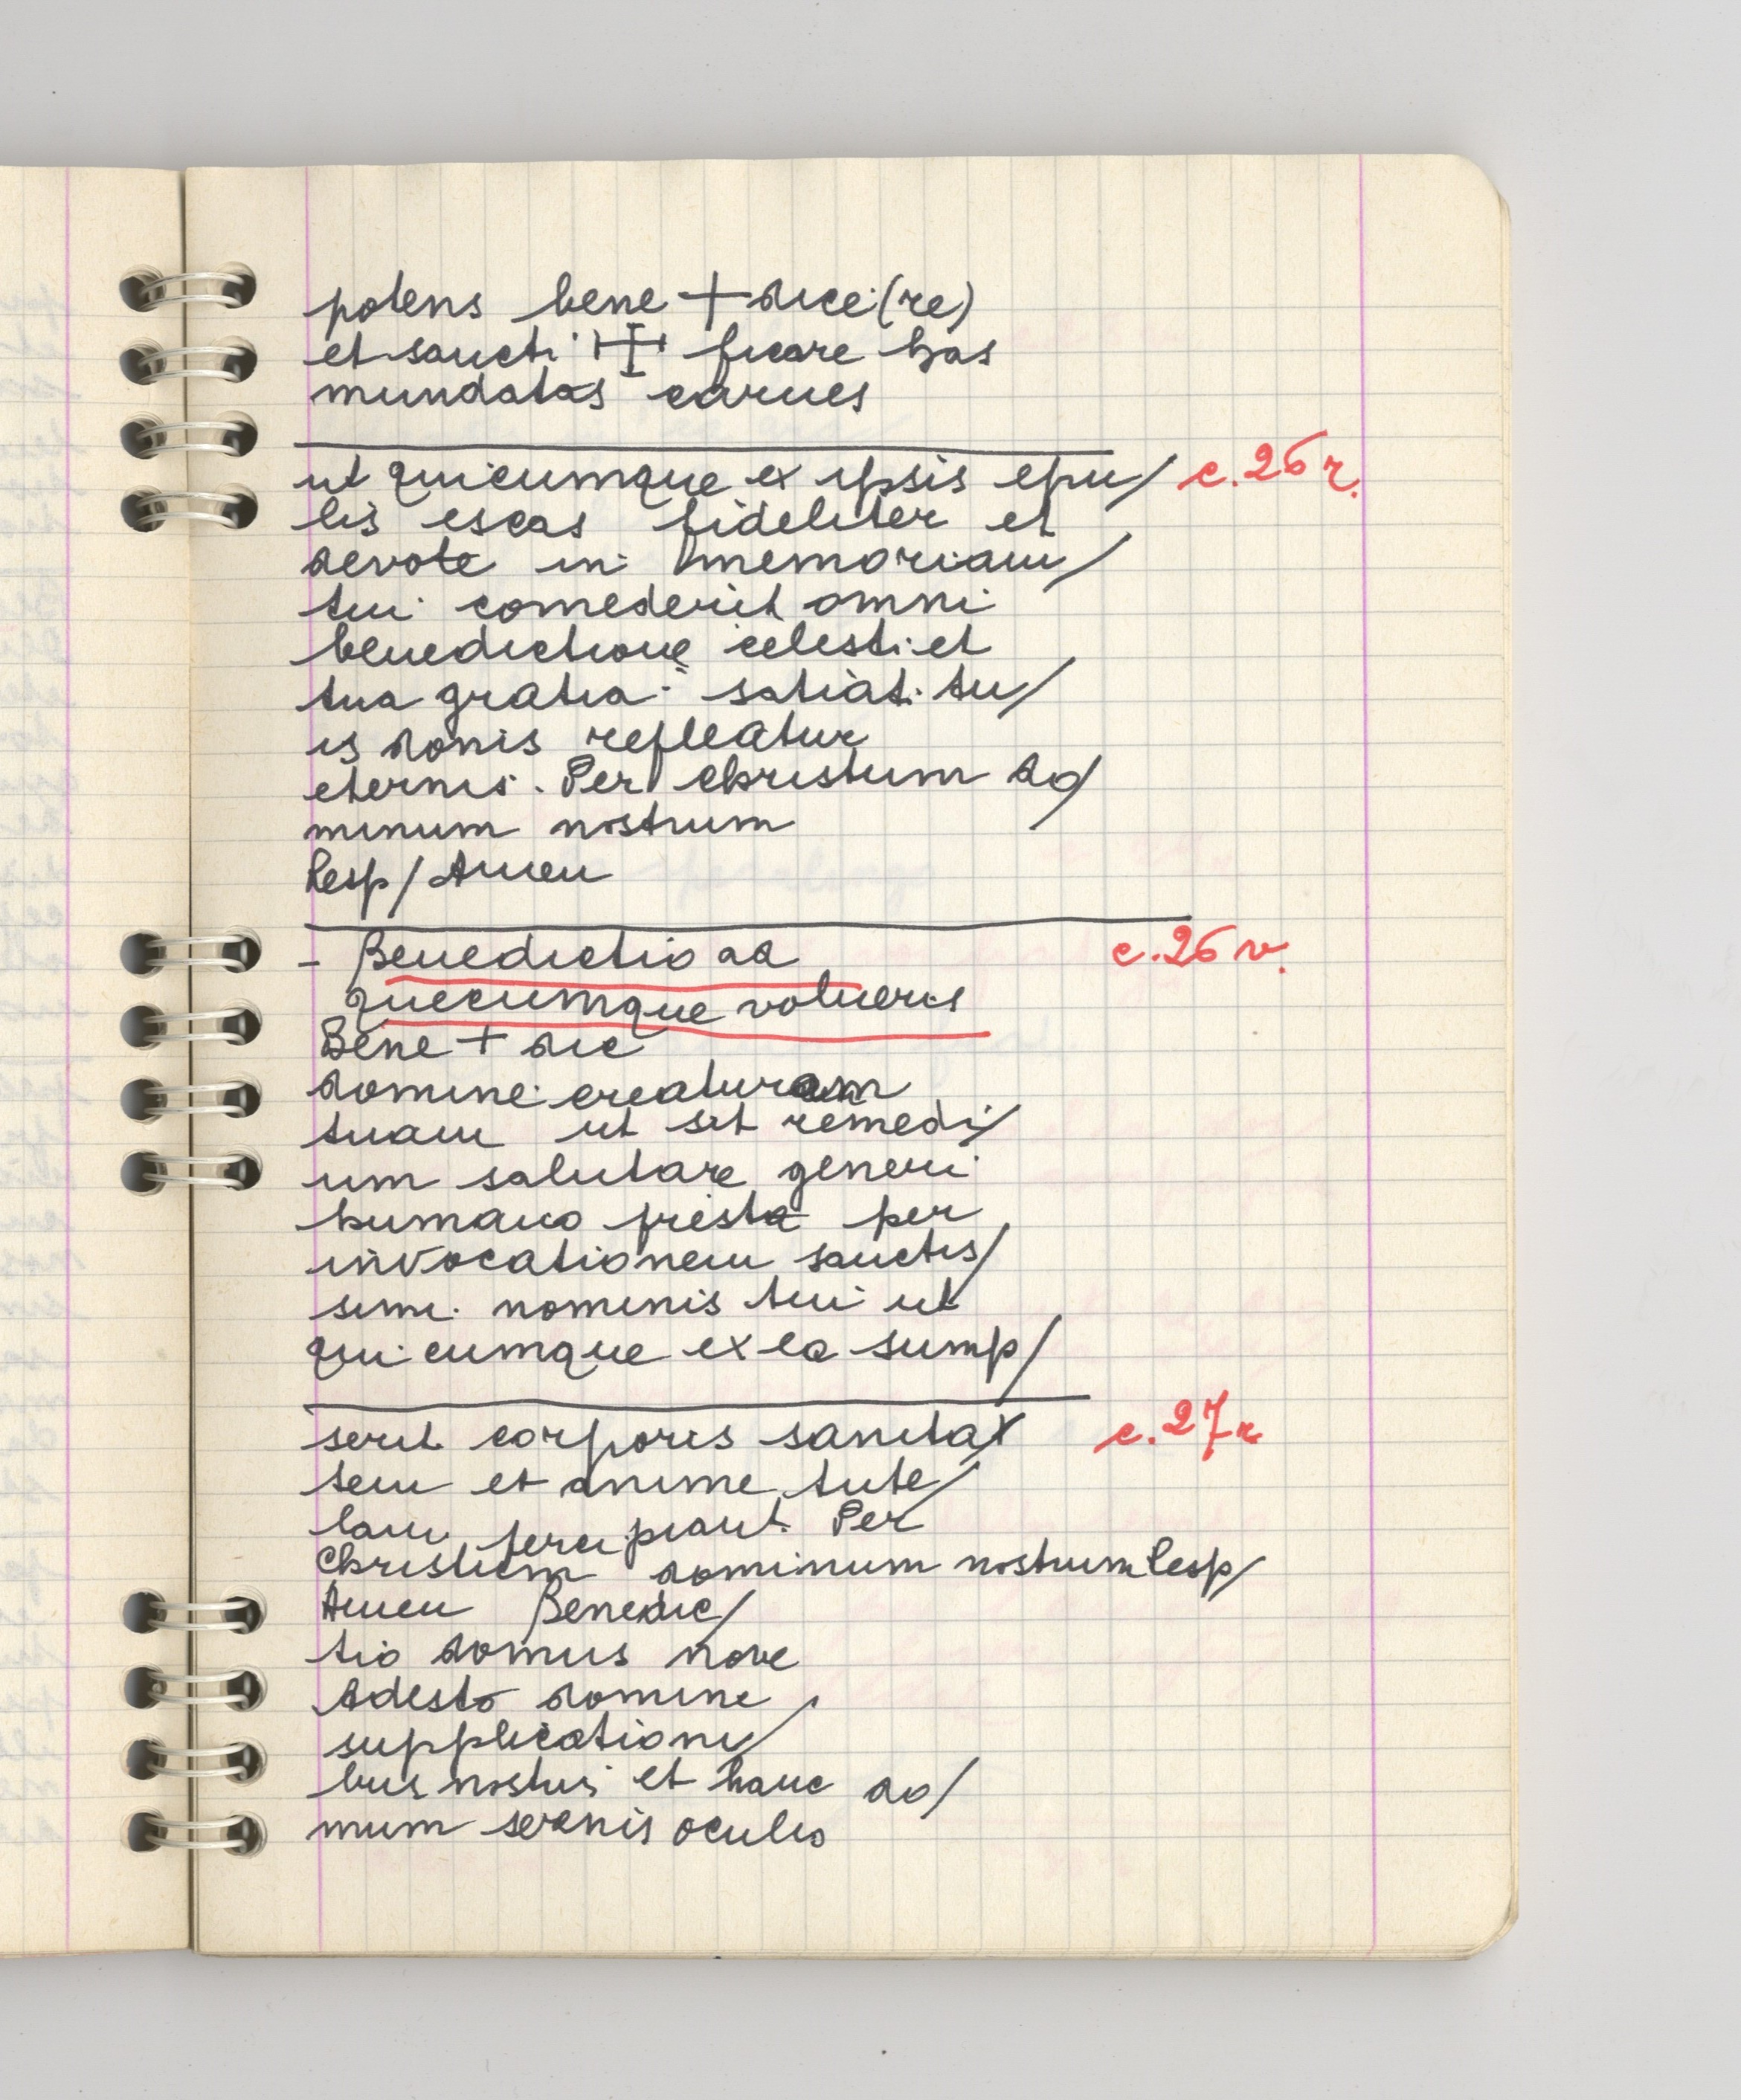 potens bene + dice(re)
et sancti ✠ ficare has
mundatas carnes
ut quicumque ex ipsis epu/ c. 26 r.
lis escas fideliter et
devote in memoriam/
tui comederit omni
benedictione celesti et
tua gratia satiat. tu/
is donis repleatur
eternis. Per Christum do/
minum nostrum
Resp/ Amen
- Benedictio ad c. 26 v.
quecumque volueris
Bene + dic
domine creaturam
tuam ut sit remedi/
um salutare generi
humano presta per
invocationem sanctis/
simi nominis tui ut
quicumque ex ea sump/
serit corporis sanita/ c. 27 r
tem et anime tute/
lam percipiant. Per
Christum dominum nostrum Resp/
Amen Benedic/
tio domus nove
Adesto domine
supplicationi/
bus nostris et hanc do/
mum serenis oculis